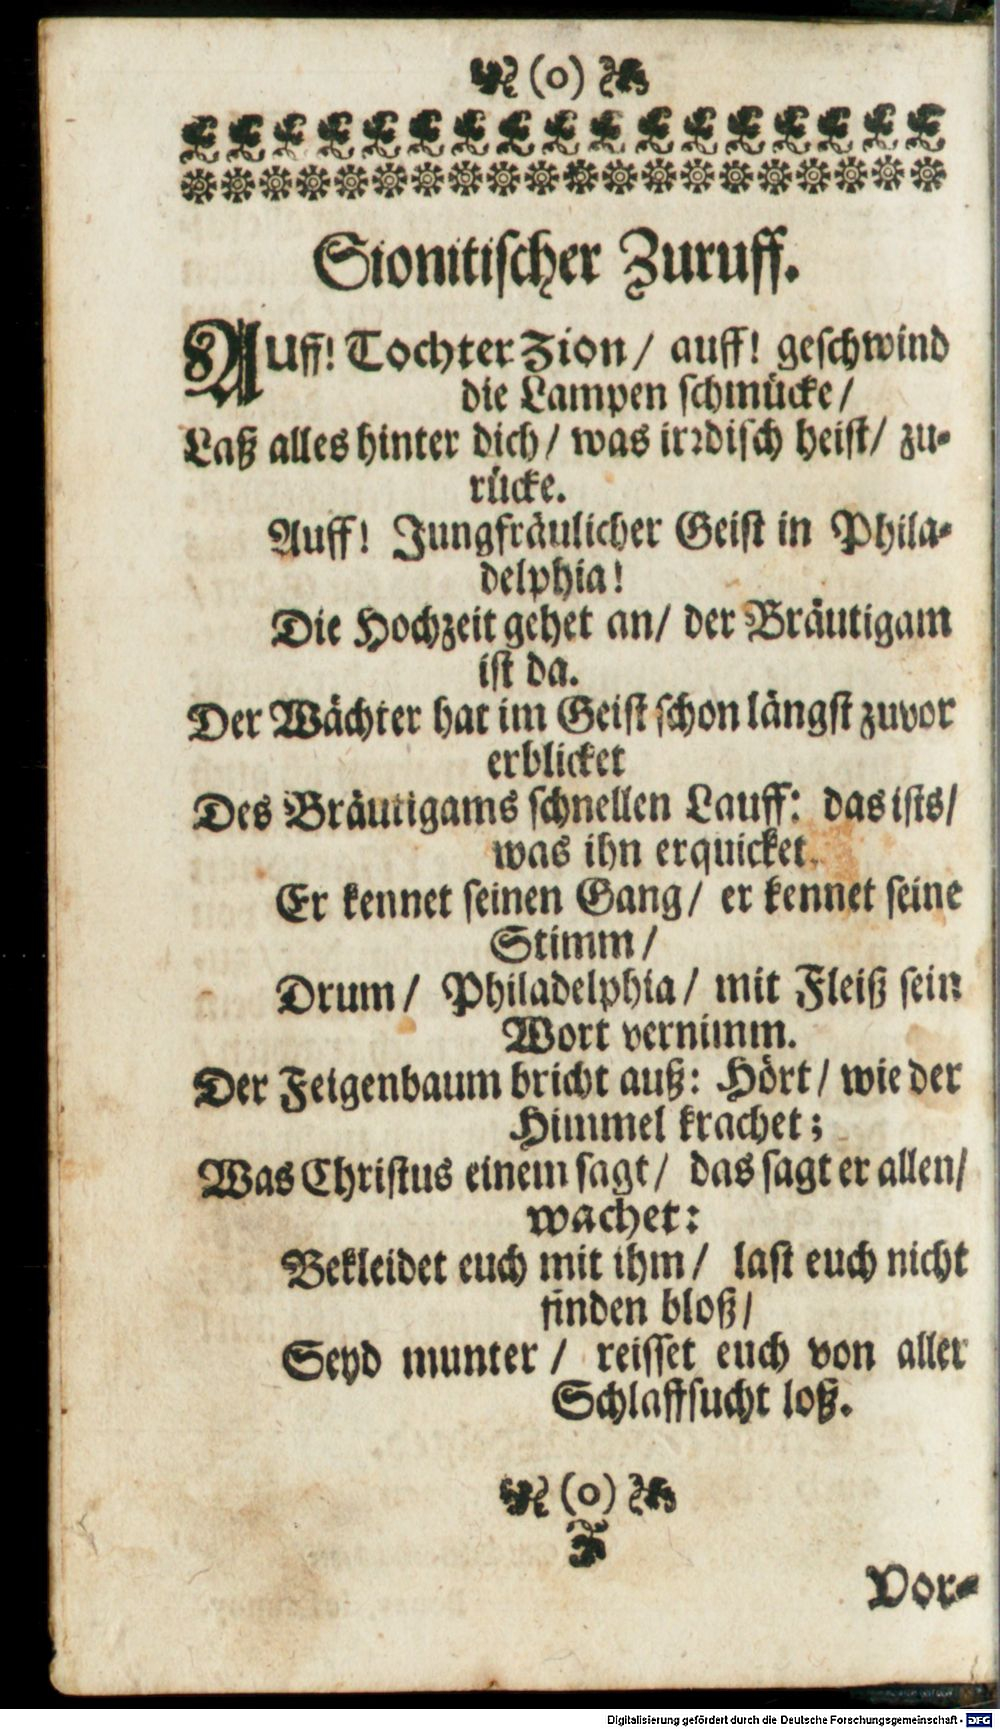 (o)
Sionitischer Zuruff.
AUff! Tochter Zion / auff! geschwind
die Lampen schmücke /
Laß alles hinter dich / was irrdisch heist / zu-
rücke.
Auff! Jungfräulicher Geist in Phila-
delphia!
Die Hochzeit gehet an / der Bräutigam
ist da.
Der Wächter hat im Geist schon längst zuvor
erblicket
Des Bräutigams schnellen Lauff: das ists /
was ihn erquicket.
Er kennet seinen Gang / er kennet seine
Stimm /
Drum / Philadelphia / mit Fleiß sein
Wort vernimm.
Der Feigenbaum bricht auß: Hört / wie der
Himmel krachet;
Was Christus einem sagt / das sagt er allen /
wachet:
Bekleidet euch mit ihm / last euch nicht
finden bloß /
Seyd munter / reisset euch von aller
Schlaffsucht loß.
(o)
Vor-
Digitalisierung gefördert durch die Deutsche Forschungsgemeinschaft - DFG